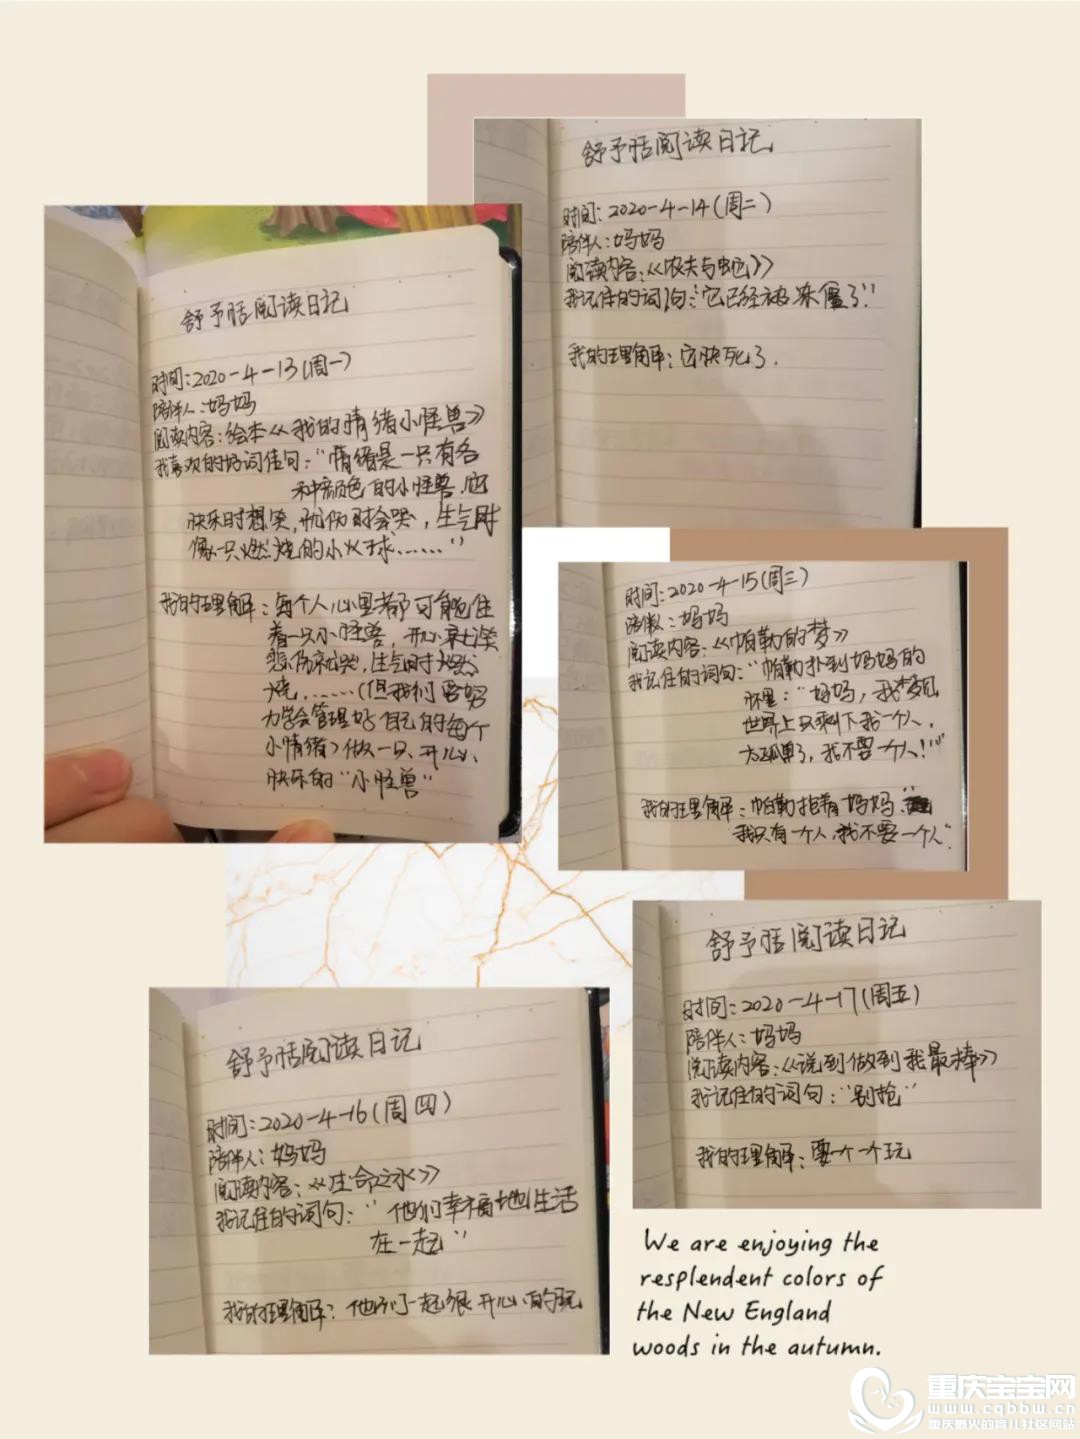 舒予恬阅读日记
时间:2020-4-13(周一)
陪伴人:妈妈
阅读内容:绘本《我的情绪小怪兽》
我喜欢的好词佳句:"情绪是一只有各
种颜色的小怪兽.它
快乐时想笑,忧伤时会哭,生气时
像一只燃烧的小火球……"
我的理解:每个人心里都可能住
着一只小怪兽,开心来让笑
悲伤就哭,生气时燃
烧……(但我们要努
力学会管理好自己的每个
小情绪)做一只开心、
快乐的"小怪兽"
舒予恬阅读日记
时间:2020-4-14(周二)
陪伴人:妈妈
阅读内容:《农夫与蛇》
我记住的词句:"它已经被冻僵了"
我的理解:它快死了.
时间:2020-4-15(周三)
陪伴人:妈妈
阅读内容:《帕勒的梦》
我记住的词句:"帕勒扑到妈妈的
怀里:"妈妈,我梦见
世界上只剩下我一个人,
太孤单了,我不要一个人!""
我的理解:帕勒抱着妈妈"
我只有一个人,我不要一个人"
舒予恬阅读日记
时间:2020-4-16(周四)
陪伴人:妈妈
阅读内容:《生命之水》
我记住的词句:"他们幸福地生活
在一起"
我的理解:他们一起很开心的玩
舒予恬阅读日记
时间:2020-4-17(周五)
陪伴人:妈妈
阅读内容:《说到做到我最棒》
我记住的词句:"别抢"
我的理解:要一个一个玩
We are enjoying the
resplendent colors of
the New England
woods in the autumn.
重庆宝宝网
www.cqbbw.cn
重庆最火的育儿社区网站